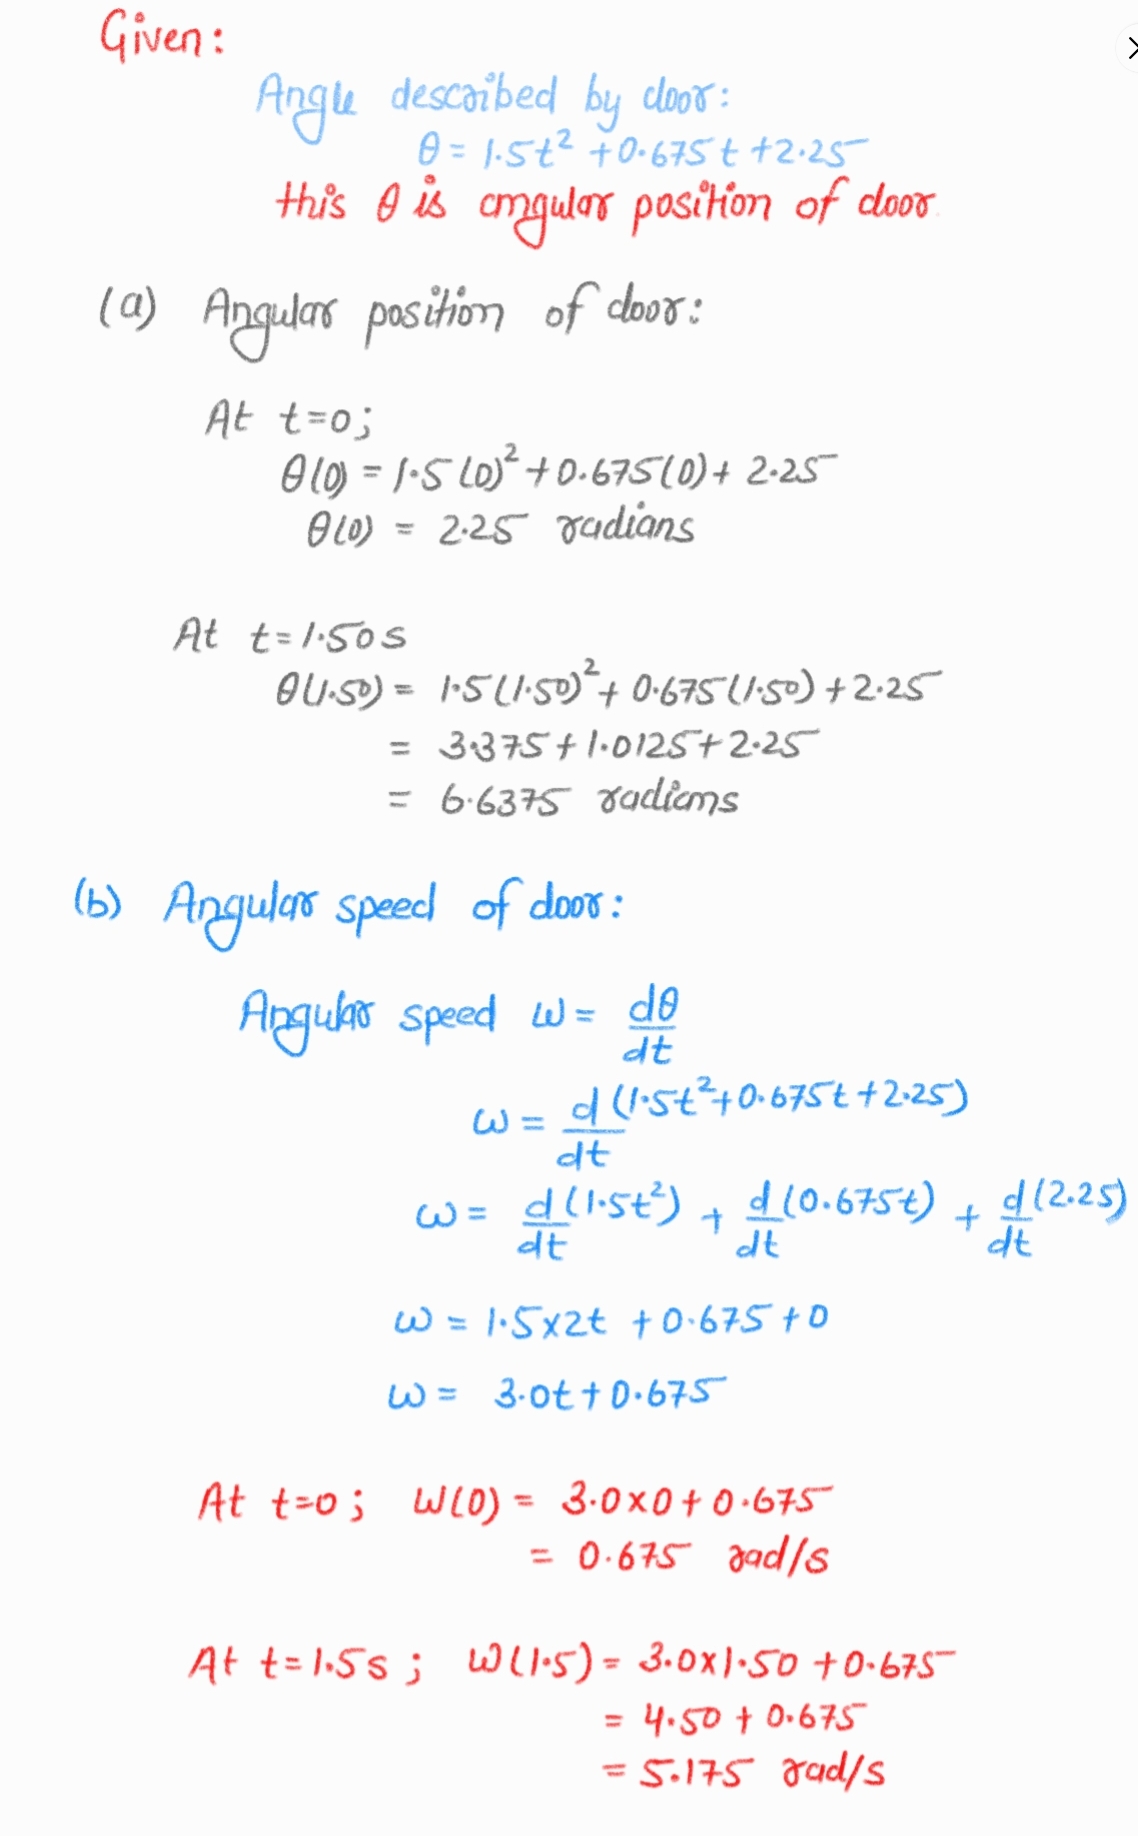 Given:
Angle described by door:
θ = 1.5t² + 0.675t + 2.25
this θ is angular position of door.
(a) Angular position of door:
At t=0;
θ(0) = 1.5(0)² + 0.675(0) + 2.25
θ(0) = 2.25 radians
At t=1.50s
θ(1.50) = 1.5(1.50)² + 0.675(1.50) + 2.25
= 3.375 + 1.0125 + 2.25
= 6.6375 radians
(b) Angular speed of door:
Angular speed ω = dθ/dt
ω = d/dt (1.5t² + 0.675t + 2.25)
ω = d/dt (1.5t²) + d/dt (0.675t) + d/dt (2.25)
ω = 1.5×2t + 0.675 + 0
ω = 3.0t + 0.675
At t=0; ω(0) = 3.0×0 + 0.675
= 0.675 rad/s
At t=1.5s; ω(1.5) = 3.0×1.50 + 0.675
= 4.50 + 0.675
= 5.175 rad/s